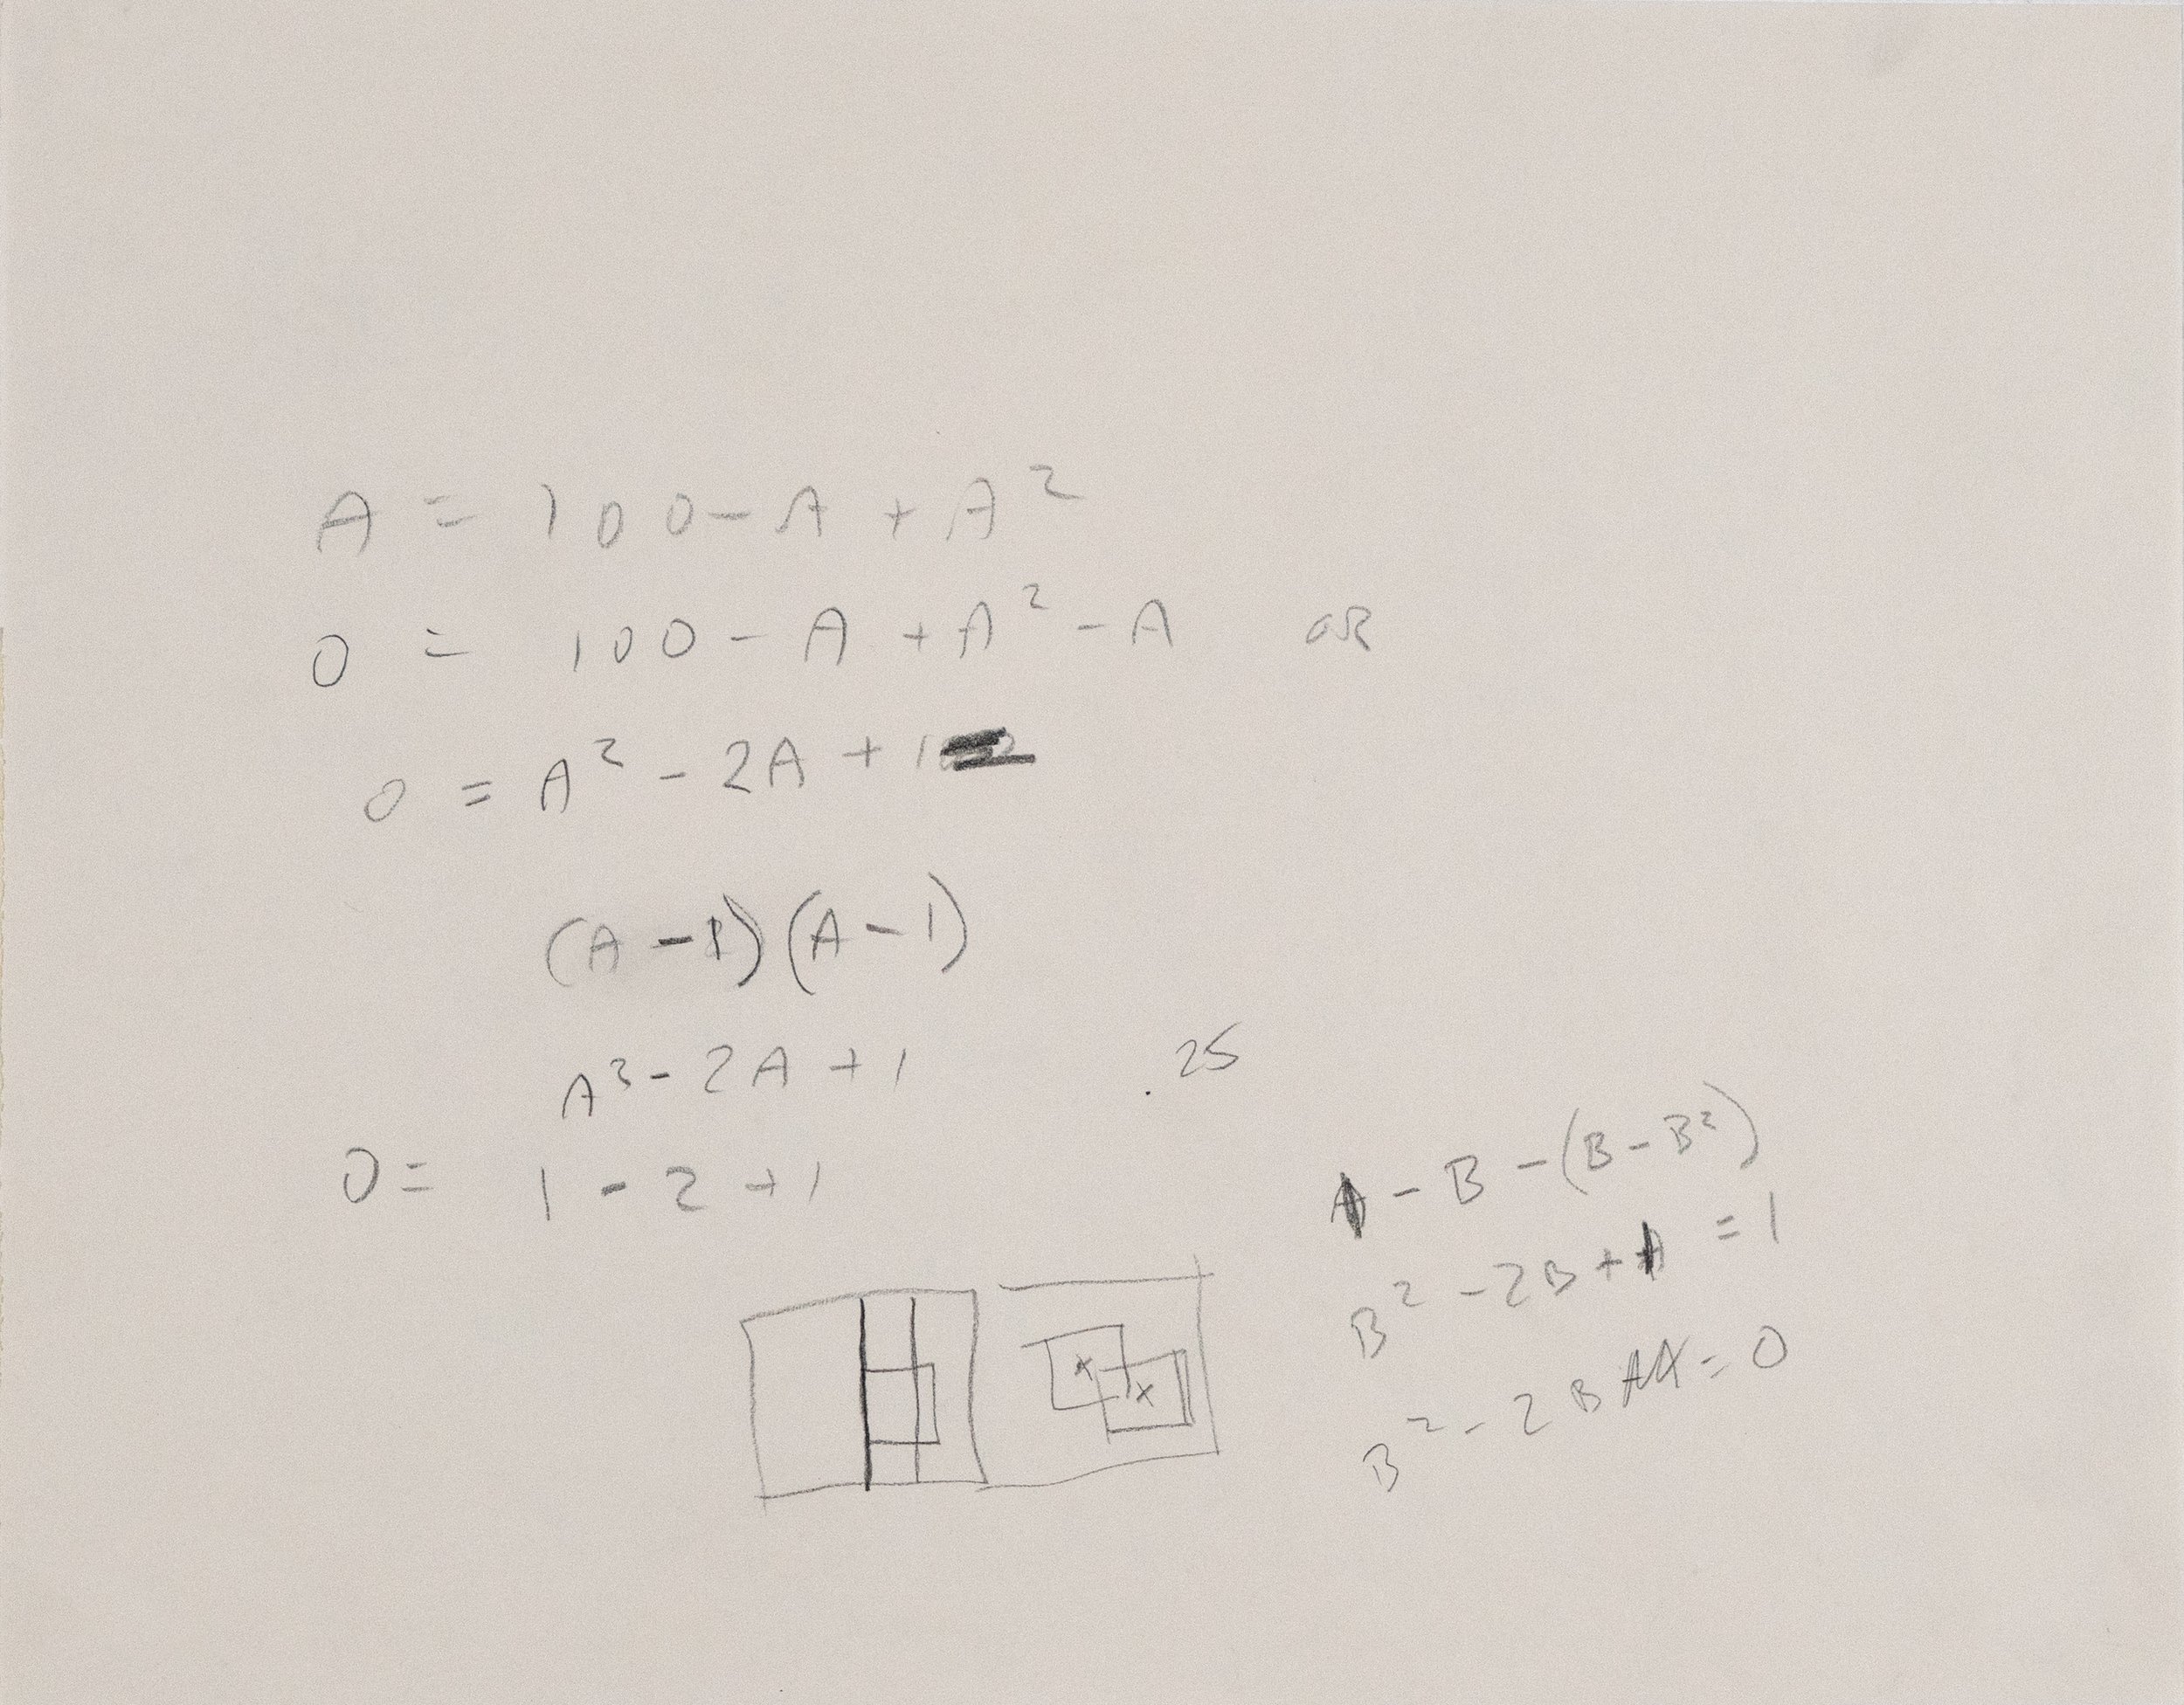 A = 100 - A + A²
0 = 100 - A + A² - A OR
0 = A² - 2A + 1
(A - 1)(A - 1)
A³ - 2A + 1
.25
0 = 1 - 2 + 1
- B - (B - B²)
B² - 2B + 1 = 1
B² - 2B = 0